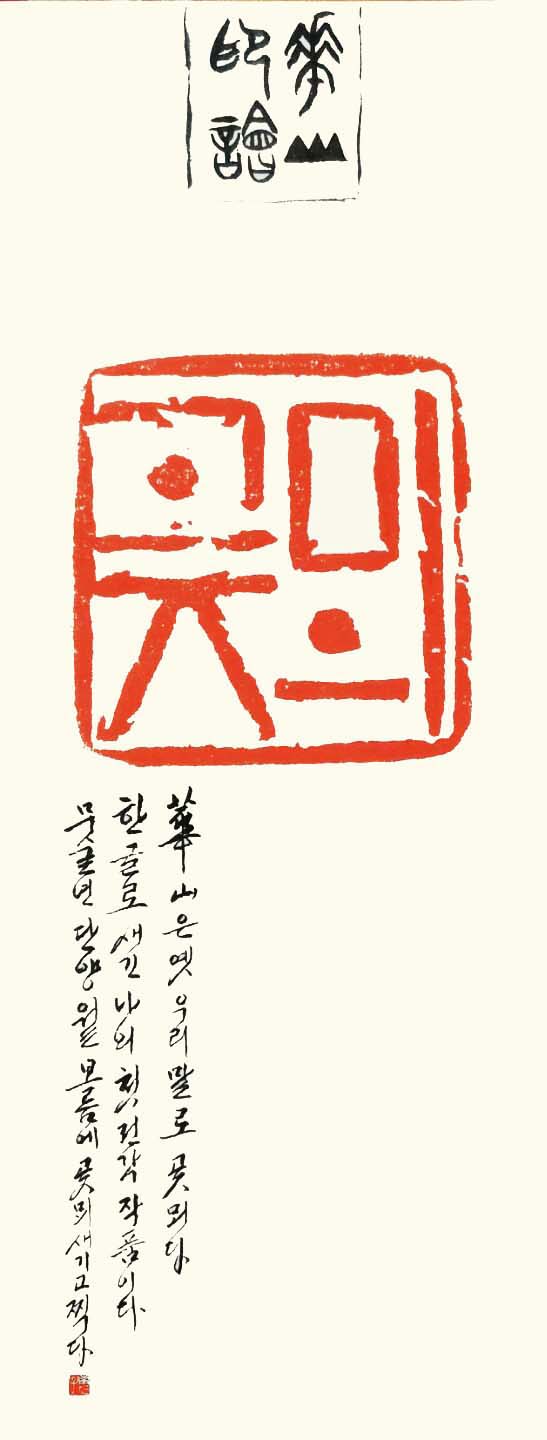 華山
印譜
곶뫼
華山은 옛 우리말로 곶뫼다
한글로 새긴 나의 첫 전각 작품이다
무술년 단양월 보름에 곶뫼 새기고 찍다